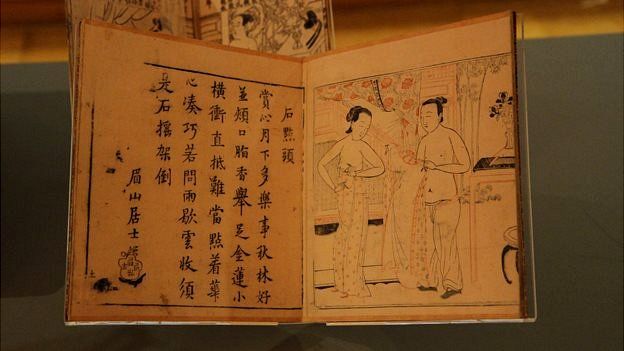 石點頭
賞心月下多樂事秋林好
並頰口脂香舉足金蓮小
橫衝直抵難當點着
心湊巧若問雨歇雲收須
是石搖架倒
眉山居士